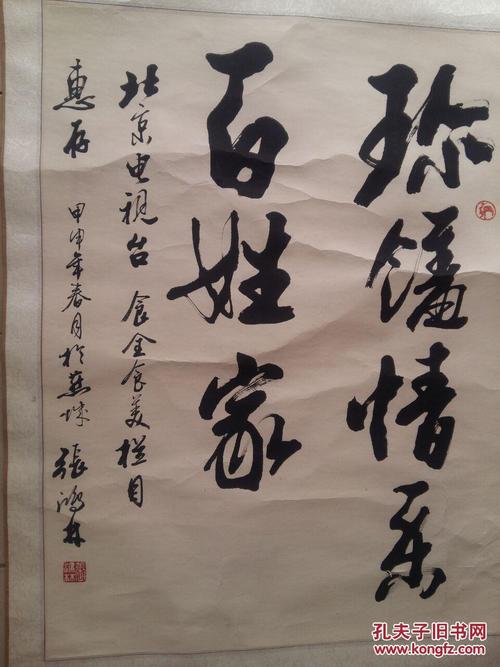 珍饈情系
百姓家
北京电視台 食全食美栏目
惠存 甲申年春月於蕉城 張鴻林
孔夫子旧书网
www.kongfz.com